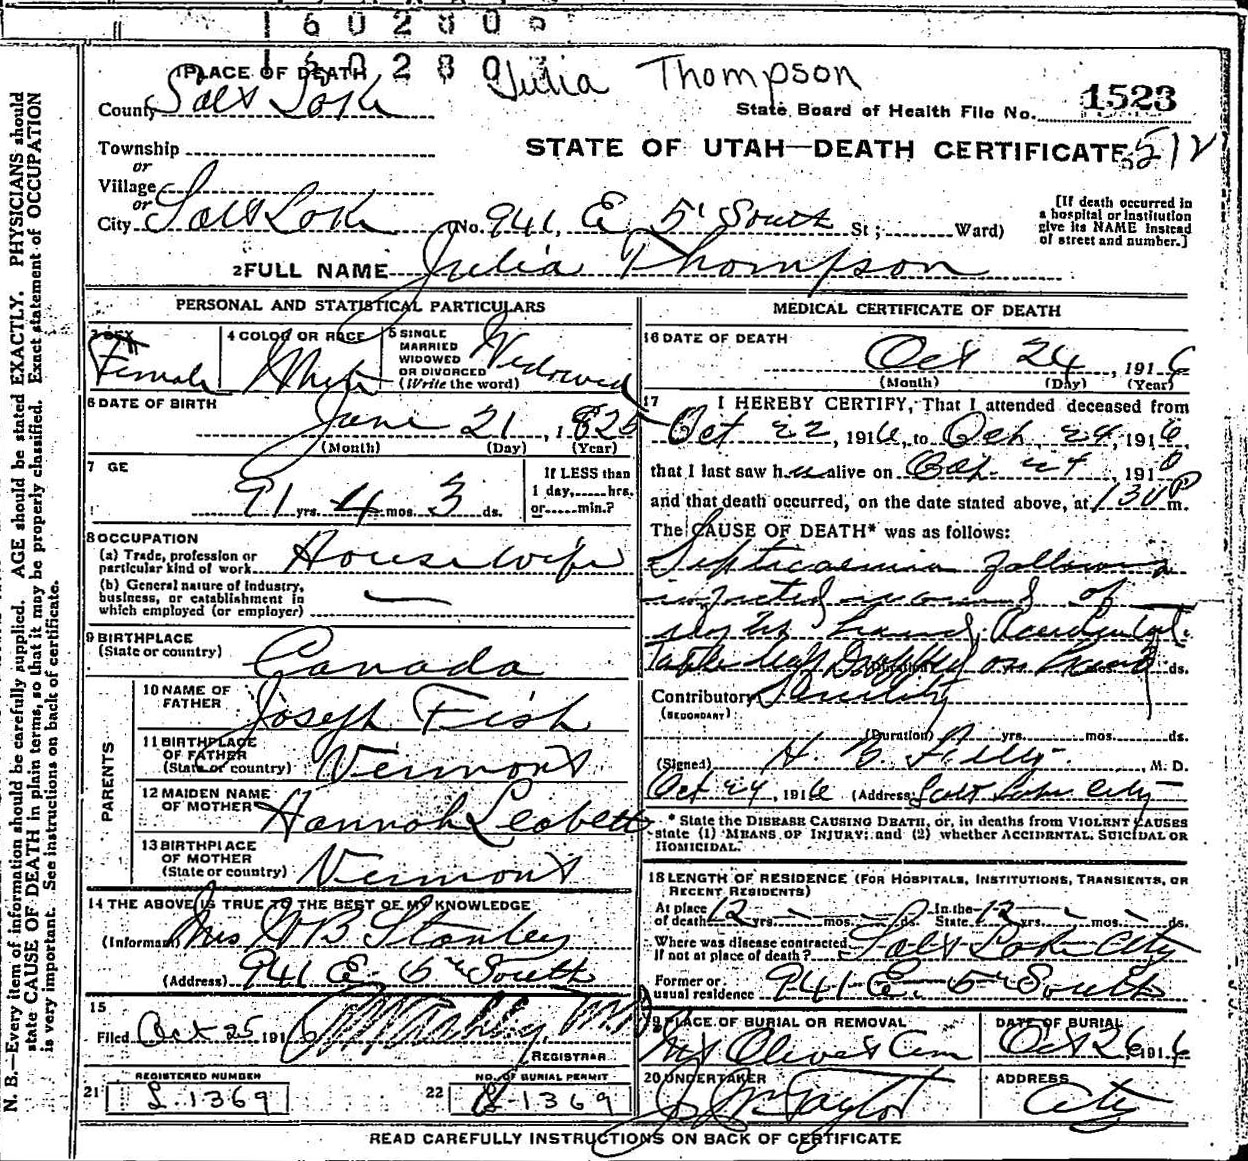 160280
1 PLACE OF DEATH 160280 Julia Thompson
County Salt Lake State Board of Health File No. 1523
Township
or STATE OF UTAH—DEATH CERTIFICATE 512
Village
or
City Salt Lake (No. 941, E 5' South St ; Ward) [If death occurred in a hospital or institution give its NAME instead of street and number.]
2 FULL NAME Julia Thompson
PERSONAL AND STATISTICAL PARTICULARS
3 SEX Female
4 COLOR OR RACE White
5 SINGLE MARRIED WIDOWED OR DIVORCED (Write the word) Widowed
6 DATE OF BIRTH June 21, 1825
(Month) (Day) (Year)
7 GE
91 yrs. 4 mos. 3 ds.
If LESS than 1 day, hrs. or min.?
8 OCCUPATION
(a) Trade, profession or particular kind of work Housewife
(b) General nature of industry, business, or establishment in which employed (or employer) —
9 BIRTHPLACE
(State or country) Canada
PARENTS
10 NAME OF FATHER Joseph Fish
11 BIRTHPLACE OF FATHER (State or country) Vermont
12 MAIDEN NAME OF MOTHER Hannah Leabett
13 BIRTHPLACE OF MOTHER (State or country) Vermont
14 THE ABOVE IS TRUE TO THE BEST OF MY KNOWLEDGE
(Informant) Mrs W B Stanley
(Address) 941 E. 5th South
15
Filed Oct 25 1916 M.D.
REGISTRAR
21 REGISTERED NUMBER L. 1369
22 NO. OF BURIAL PERMIT 1369
MEDICAL CERTIFICATE OF DEATH
16 DATE OF DEATH
Oct 24, 1916
(Month) (Day) (Year)
17 I HEREBY CERTIFY, That I attended deceased from
Oct 22, 1916, to Oct, 24, 1916,
that I last saw her alive on Oct. 24 1916
and that death occurred, on the date stated above, at 1 30 P m.
The CAUSE OF DEATH* was as follows:
Septicaemia following
infected wound of
right hand, Accidental.
Table leaf Dropped on hand
(Duration) yrs. mos. ds.
Contributory Senility
(SECONDARY)
(Duration) yrs. mos. ds.
(Signed) H. B. , M. D.
Oct 24, 1916 (Address) Salt Lake City
* State the DISEASE CAUSING DEATH, or, in deaths from VIOLENT CAUSES
state (1) MEANS OF INJURY; and (2) whether ACCIDENTAL, SUICIDAL OR
HOMICIDAL.
18 LENGTH OF RESIDENCE (FOR HOSPITALS, INSTITUTIONS, TRANSIENTS, OR
RECENT RESIDENTS)
At place of death 12 yrs. - mos. - ds. In the State 12 yrs. - mos. - ds.
Where was disease contracted, if not at place of death? Salt Lake City
Former or usual residence 941 E. 5th South
19 PLACE OF BURIAL OR REMOVAL Mt Olivet Cem
DATE OF BURIAL Oct 26 1916
20 UNDERTAKER Taylor
ADDRESS City
READ CAREFULLY INSTRUCTIONS ON BACK OF CERTIFICATE
N. B.—Every item of information should be carefully supplied. AGE should be stated EXACTLY. PHYSICIANS should
state CAUSE OF DEATH in plain terms, so that it may be properly classified. Exact statement of OCCUPATION
is very important. See instructions on back of certificate.